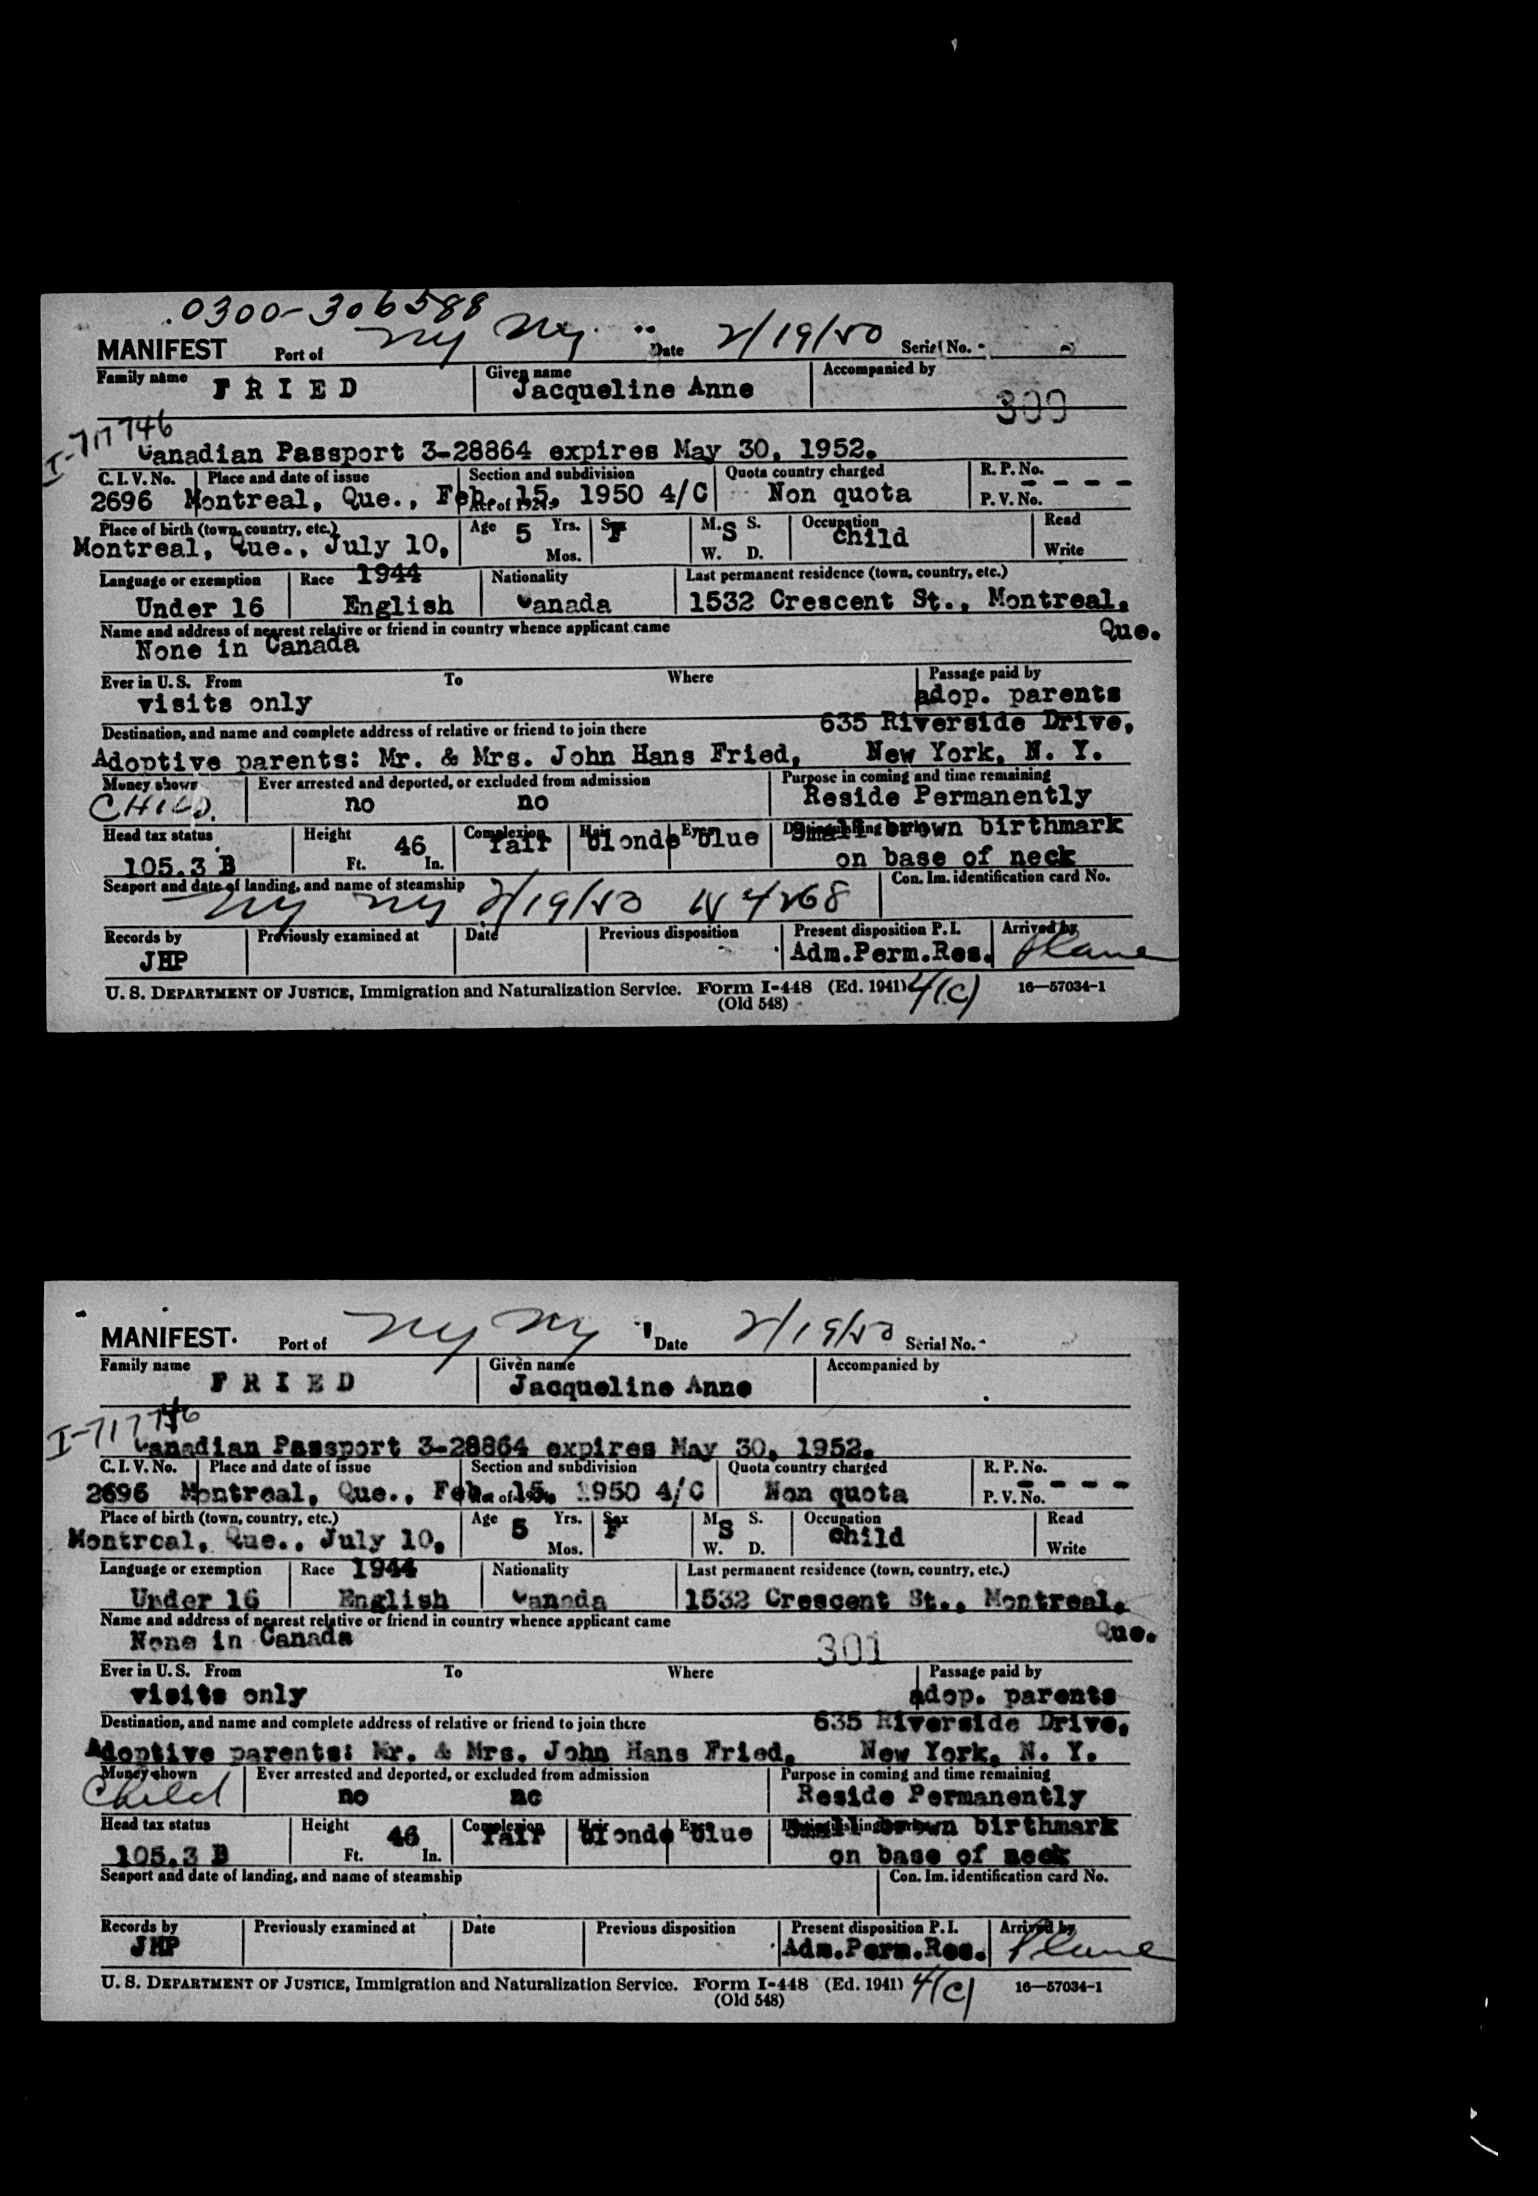 .0300-306588
MANIFEST Port of NY NY. Date 2/19/50 Serial No.
Family name FRIED Given name Jacqueline Anne Accompanied by
300
I-717746
Canadian Passport 3-28864 expires May 30, 1952.
C. I. V. No. Place and date of issue Section and subdivision Quota country charged R. P. No. - - - -
2696 Montreal, Que., Feb. 15, 1950 4/C Non quota P. V. No.
Act of 1924.
Place of birth (town, country, etc.) Age 5 Yrs. Sex F M. S S. Occupation Read
Montreal, Que., July 10, Mos. W. D. child Write
Language or exemption Race 1944 Nationality Last permanent residence (town, country, etc.)
Under 16 English Canada 1532 Crescent St., Montreal,
Name and address of nearest relative or friend in country whence applicant came Que.
None in Canada
Ever in U. S. From To Where Passage paid by
visits only adop. parents
Destination, and name and complete address of relative or friend to join there 635 Riverside Drive,
Adoptive parents: Mr. & Mrs. John Hans Fried, New York, N. Y.
Money shown Ever arrested and deported, or excluded from admission Purpose in coming and time remaining
CHILD. no no Reside Permanently
Head tax status Height 46 Complexion fair Hair blonde Eyes blue Distinguishing Small brown birthmark
105.3 B Ft. In. on base of neck
Seaport and date of landing, and name of steamship Con. Im. identification card No.
NY NY 2/19/50 4268
Records by Previously examined at Date Previous disposition Present disposition P. I. Arrived by
JHP Adm.Perm.Res. Plane
U. S. DEPARTMENT OF JUSTICE, Immigration and Naturalization Service. Form I-448 (Ed. 1941) 4/(c) 16—57034-1
(Old 548)
MANIFEST. Port of NY NY Date 2/19/50 Serial No.
Family name FRIED Given name Jacqueline Anne Accompanied by
I-717746
Canadian Passport 3-28864 expires May 30, 1952.
C. I. V. No. Place and date of issue Section and subdivision Quota country charged R. P. No. - - - -
2696 Montreal, Que., Feb. 15, 1950 4/C Non quota P. V. No.
Place of birth (town, country, etc.) Age 5 Yrs. Sex F M. S S. Occupation Read
Montreal, Que., July 10, Mos. W. D. child Write
Language or exemption Race 1944 Nationality Last permanent residence (town, country, etc.)
Under 16 English Canada 1532 Crescent St., Montreal,
Name and address of nearest relative or friend in country whence applicant came Que.
None in Canada 301
Ever in U. S. From To Where Passage paid by
visits only adop. parents
Destination, and name and complete address of relative or friend to join there 635 Riverside Drive,
Adoptive parents: Mr. & Mrs. John Hans Fried, New York, N. Y.
Money shown Ever arrested and deported, or excluded from admission Purpose in coming and time remaining
Child no no Reside Permanently
Head tax status Height 46 Complexion fair Hair blonde Eyes blue Distinguishing Small brown birthmark
105.3 B Ft. In. on base of neck
Seaport and date of landing, and name of steamship Con. Im. identification card No.
Records by Previously examined at Date Previous disposition Present disposition P. I. Arrived by
JHP Adm.Perm.Res. Plane
U. S. DEPARTMENT OF JUSTICE, Immigration and Naturalization Service. Form I-448 (Ed. 1941) 4/(c) 16—57034-1
(Old 548)